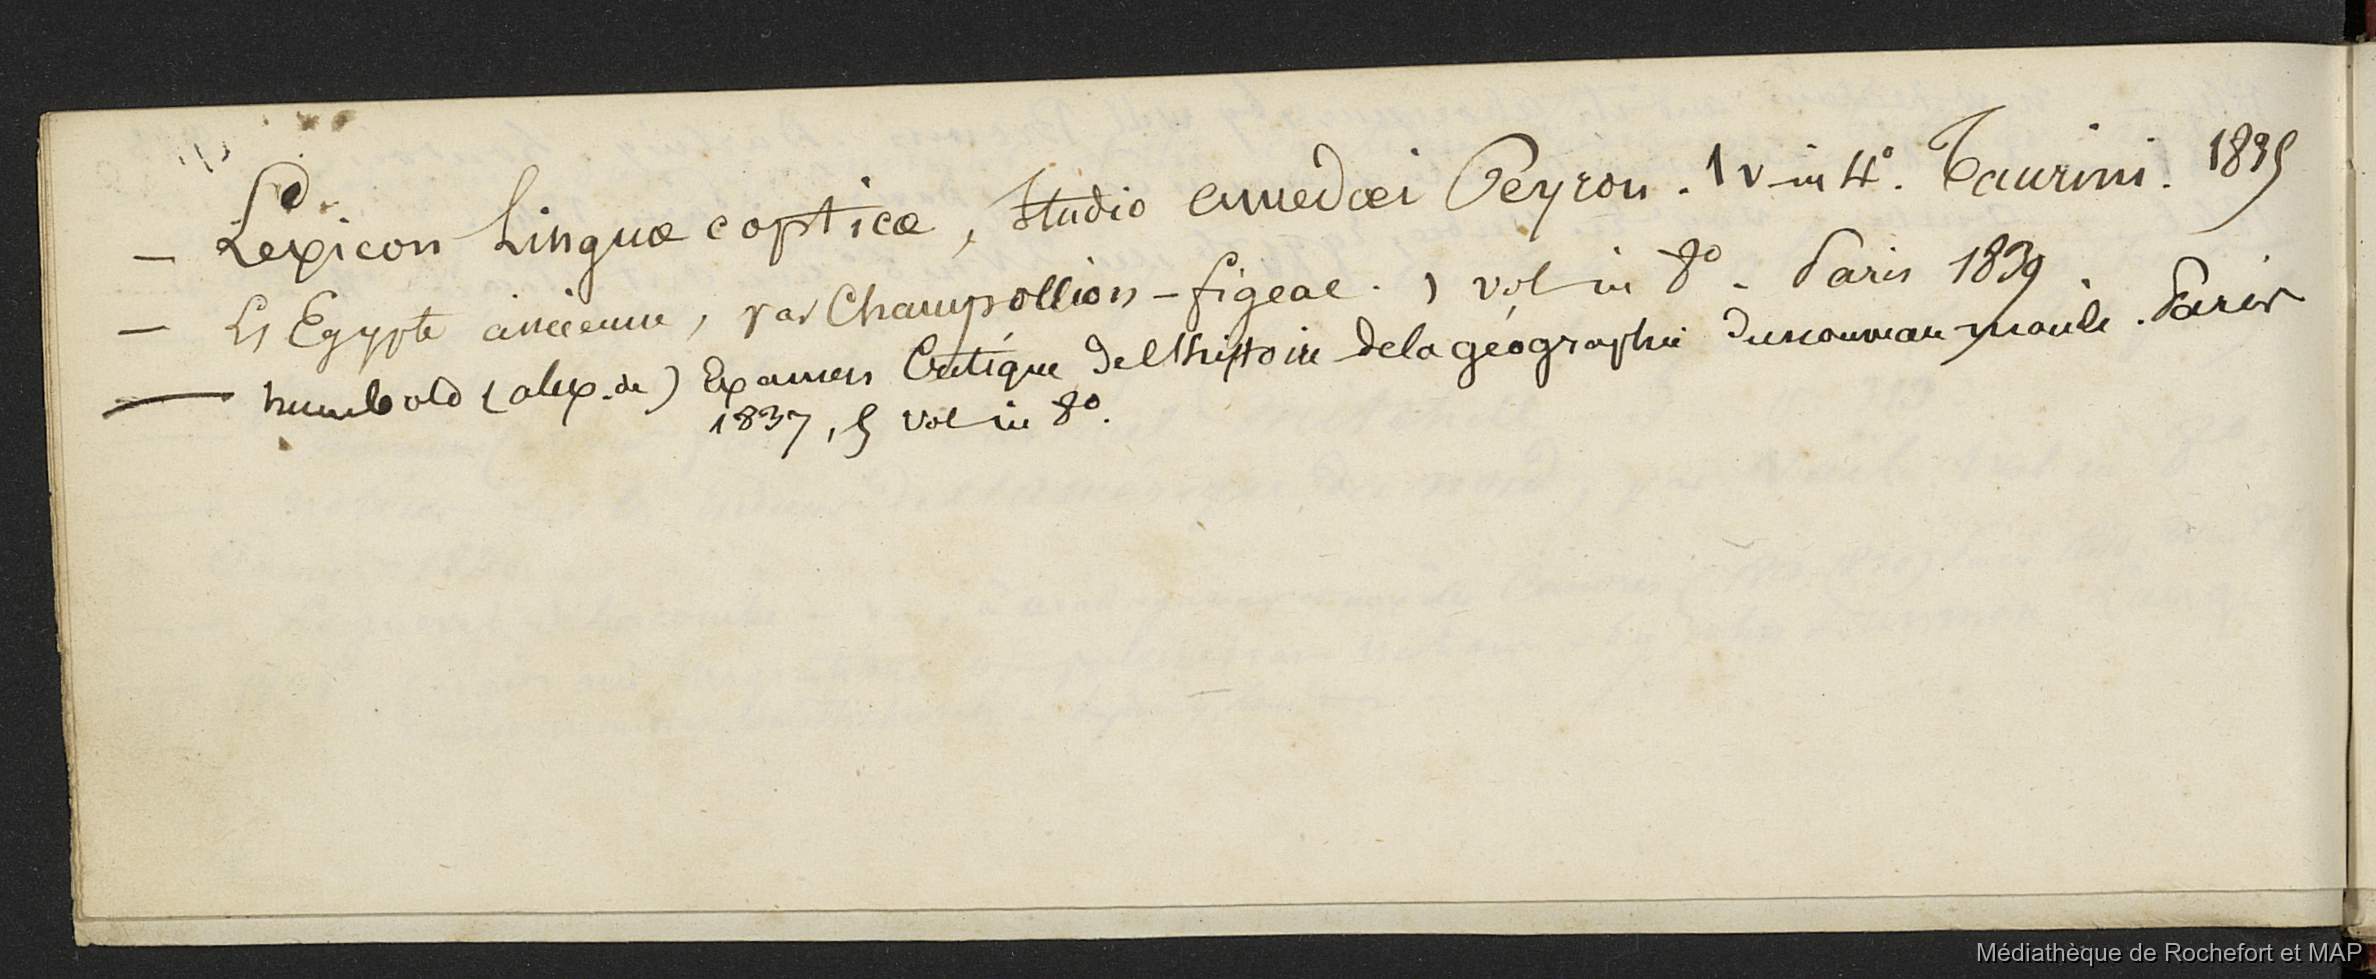 — Lexicon Linguæ copticæ, Studio amedæi Peyron. 1 v in 4°. Taurini. 1835
— L'Egypte ancienne, par Champollion-figeac. 1 vol in 8° - Paris 1839.
— humbold (alex. de) Examen Critique de l'histoire de la géographie du nouveau monde. Paris
1837, 5 vol in 8°.
Médiathèque de Rochefort et MAP